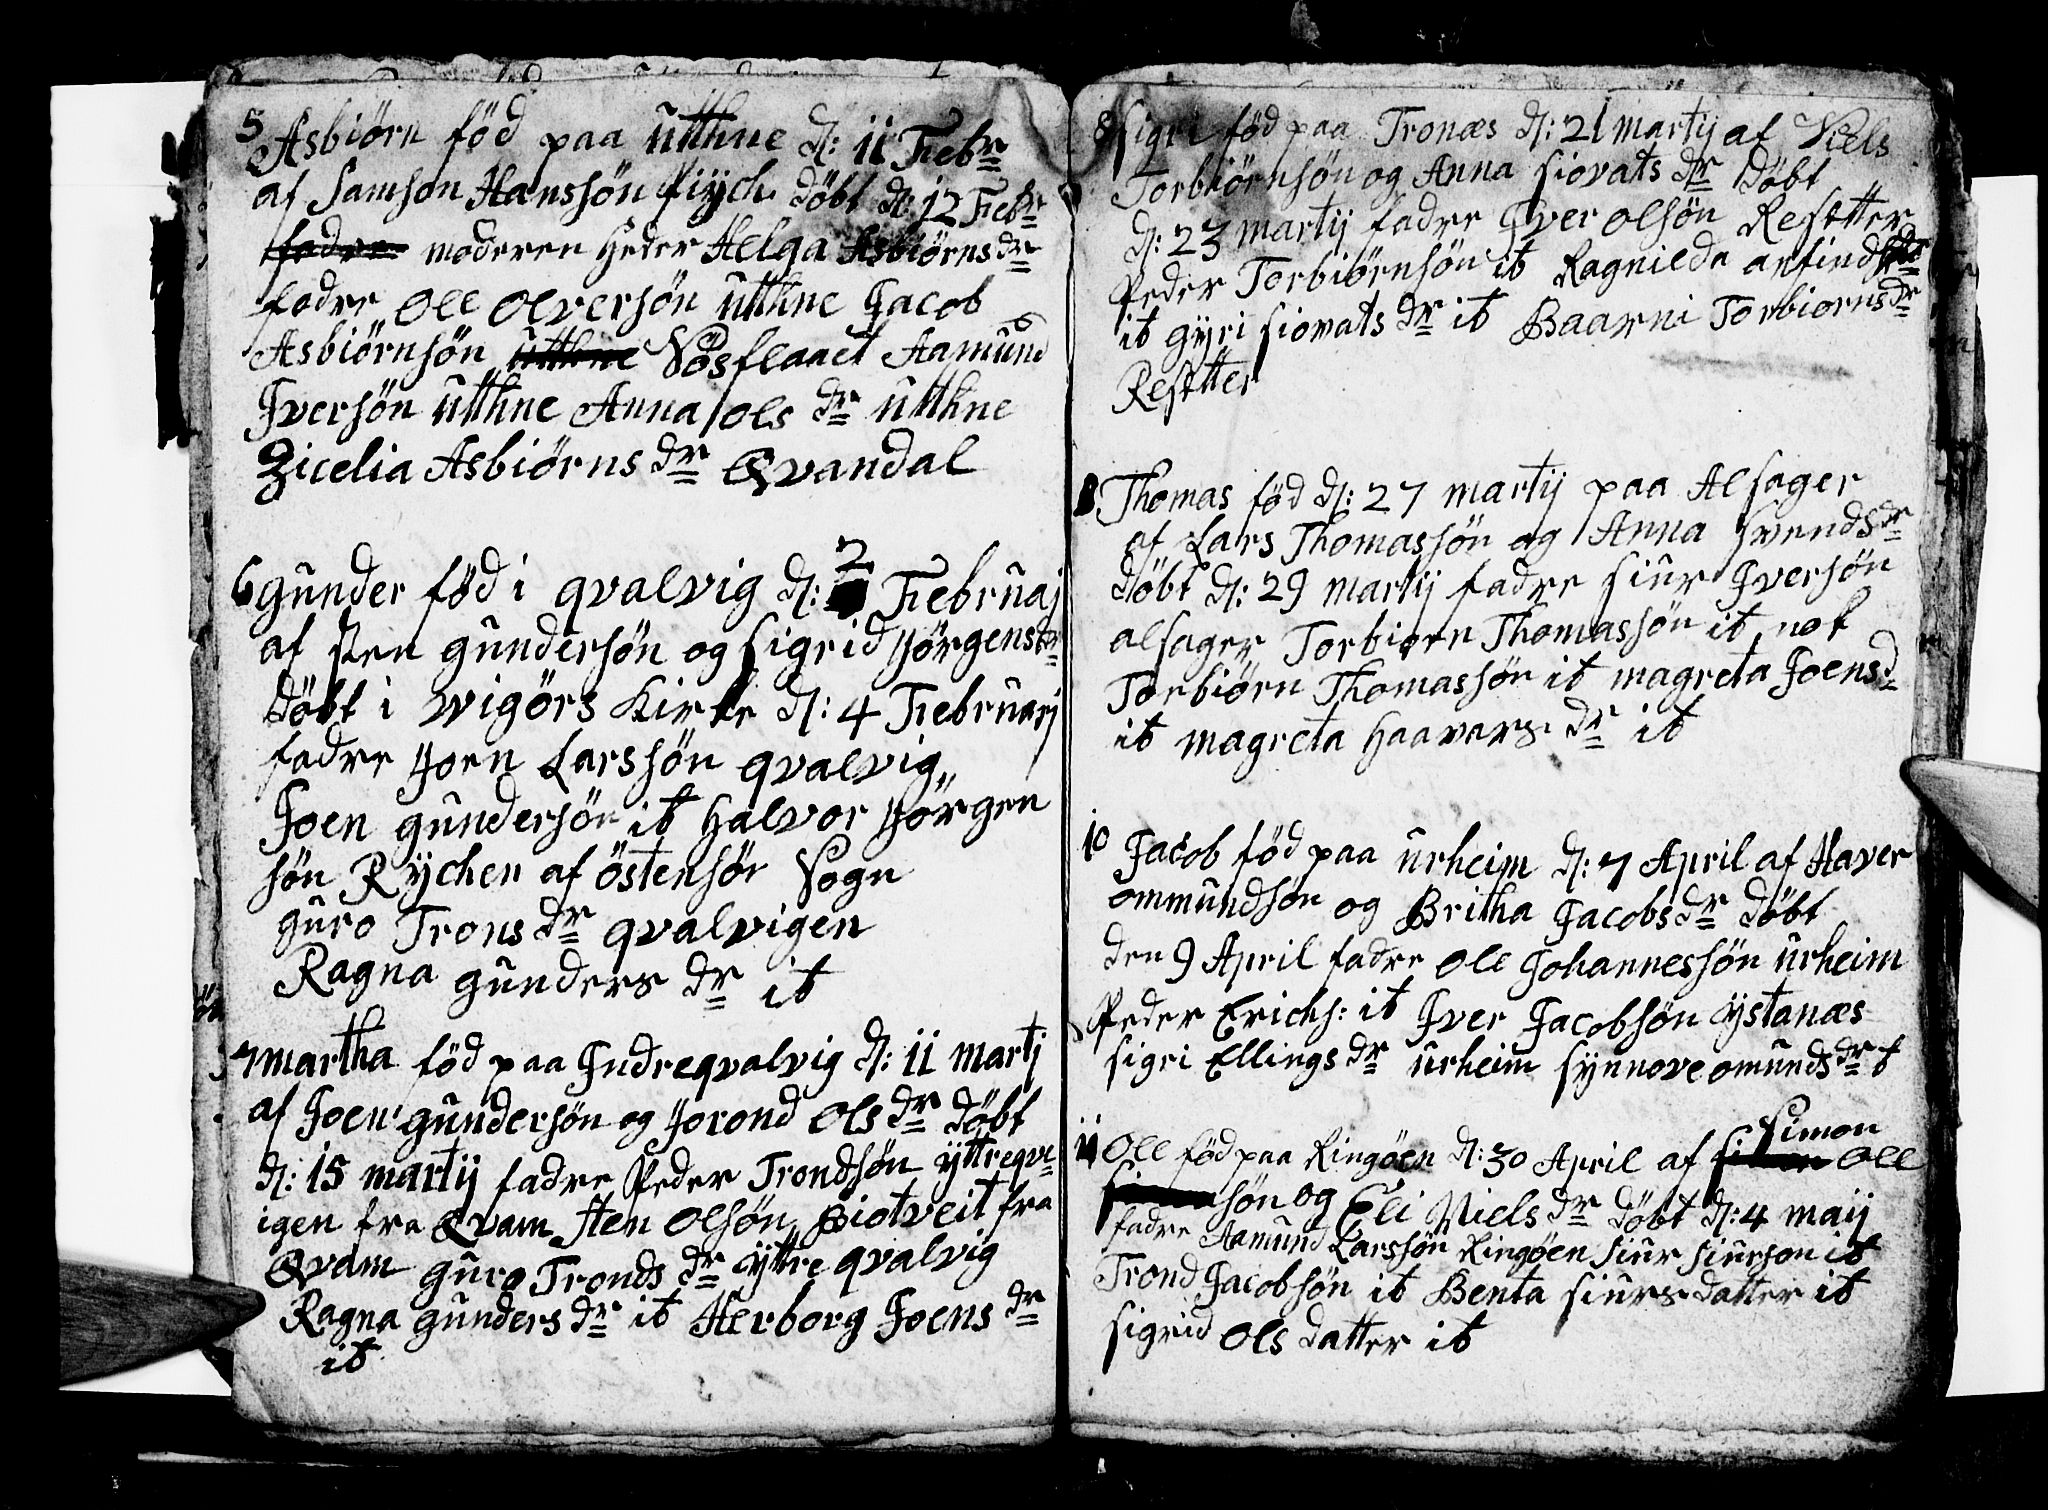 5 Asbiørn fød paa Utthne d: 11 Febr
af Samson Hanssøn døbt d: 12 Febr
fadre moderen Heder Helga Asbiørns dr
fadre Ole Olversøn Utthne Jacob
Asbiørnsøn utthne Aamund
Iversøn utthne Anna Ols dr utthne
Zicelia Asbiørns dr Qvandal
6 gunder fød i qvalvig d: 2 Februaj
af sten gundersøn og sigrid Jørgensdr
døbt i wigørs Kirke d: 4 Februarj
fadre Joen Larssøn qvalvig
Joen gundersøn it Halvor Jørgen
søn Rychen af östensör Sogn
guro Trons dr qvalvigen
Ragna gunders dr it
7 martha fød paa Indreqvalvig d: 11 martj
af Joen gundersøn og Jorond Ols dr døbt
d: 15 martij fadre Peder Trondsøn ÿttreqve
igen fra Qvam Sten Olsøn Biotveit fra
Qvam guro Tronds dr ÿttre qvalvig
Ragna gunders dr it Herborg Joens dr
it
8 sigri fød paa Tronæs d: 21 martij af Niels
Torbiörnsön og Anna siovats dr døbt
d: 23 martij fadre Iver olsön Restter
Peder Torbiörnsön it Ragnilda arfinds dr
it gÿri siovats dr it Baarni Torbiorns dr
Restter
Thomas fød d: 27 martij paa Alsager
af Lars Thomassøn og Anna svends dr
døbt d: 29 martij fadre siur Iversøn
alsager Torbiørn Thomassøn it nok
Torbiørn Thomassøn it magreta Joens d
it magreta Haavars dr it
10 Jacob fød paa urheim d: 7 April af Haver
ommundsøn og Britha Jacobs dr døbt
den 9 April fadre Ole Johannessøn urheim
Peder Erichs: it Iver Jacobsøn ÿstanæs
sigri Ellings dr urheim synnove omunds dr it
simon
11 Ole fød paa Ringøen d: 30 April af Ole
søn og Eli Niels dr døbt d: 4 maij
fadre Aamund Larssøn Ringøen siur siurson it
Trond Jacobsøn it Benta siurs datter it
sigrid Ols datter it